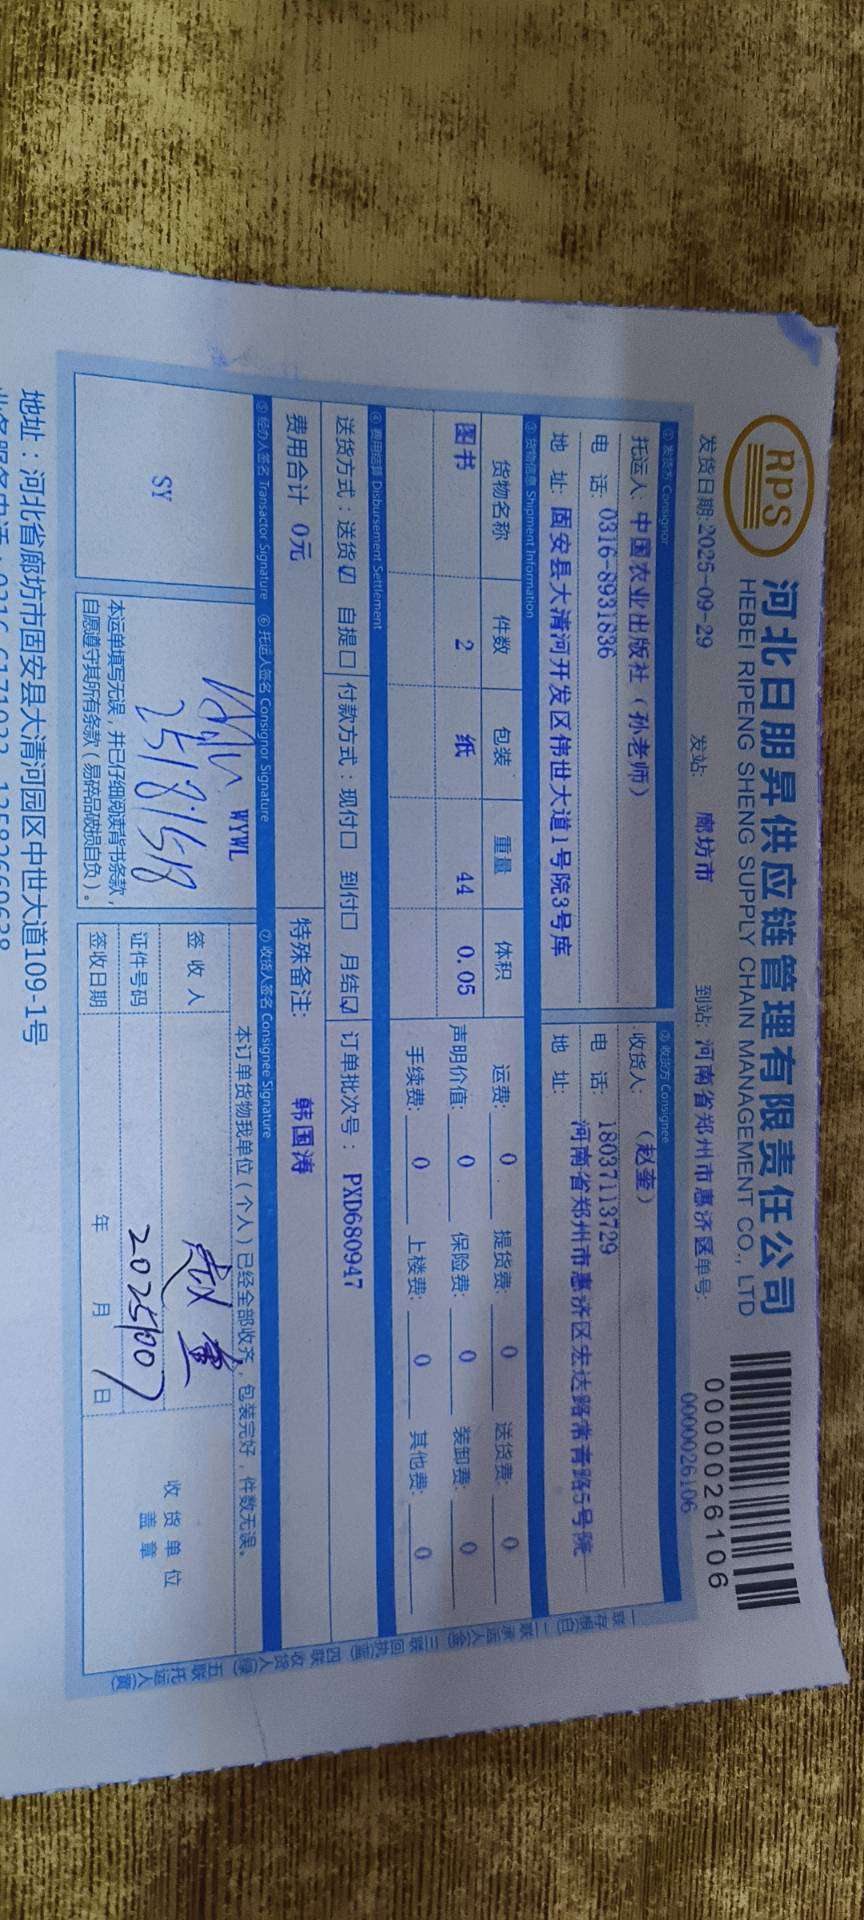 RPS
河北日朋昇供应链管理有限责任公司
HEBEI RIPENG SHENG SUPPLY CHAIN MANAGEMENT CO., LTD
0000026106
0000026106
发货日期:2025-09-29 发站: 廊坊市 到站: 河南省郑州市惠济区 单号:
① 发货方 Consignor ② 收货方 Consignee
托运人: 中国农业出版社（孙老师） 收货人: （赵奎）
电 话: 0316-8931836 电 话: 18037113729
地 址: 固安县大清河开发区伟世大道1号院3号库 地 址: 河南省郑州市惠济区宏达路常青路5号院
③ 货物信息 Shipment Information
货物名称 件数 包装 重量 体积 运费: 0 提货费: 0 送货费: 0
图书 2 纸 44 0.05 声明价值: 0 保险费: 0 装卸费: 0
手续费: 0 上楼费: 0 其他费: 0
④ 费用结算 Disbursement Settlement
送货方式：送货☑ 自提□ 付款方式：现付□ 到付□ 月结☑ 订单批次号： PXD680947
费用合计 0元 特殊备注: 韩国涛
⑤ 经办人签名 Transactor Signature ⑥ 托运人签名 Consignor Signature ⑦ 收货人签名 Consignee Signature
SY
WYWL
本运单填写无误，并已仔细阅读背书条款，
自愿遵守其所有条款（易碎品破损自负）。
本订单货物我单位（个人）已经全部收齐，包装完好，件数无误。
签 收 人 赵奎
证件号码
签收日期 年 月 日
收 货 单 位
盖 章
一联存根(白) 二联承运人(金) 三联回执(蓝) 四联收货人(绿) 五联托运人(黄)
地址：河北省廊坊市固安县大清河园区中世大道109-1号